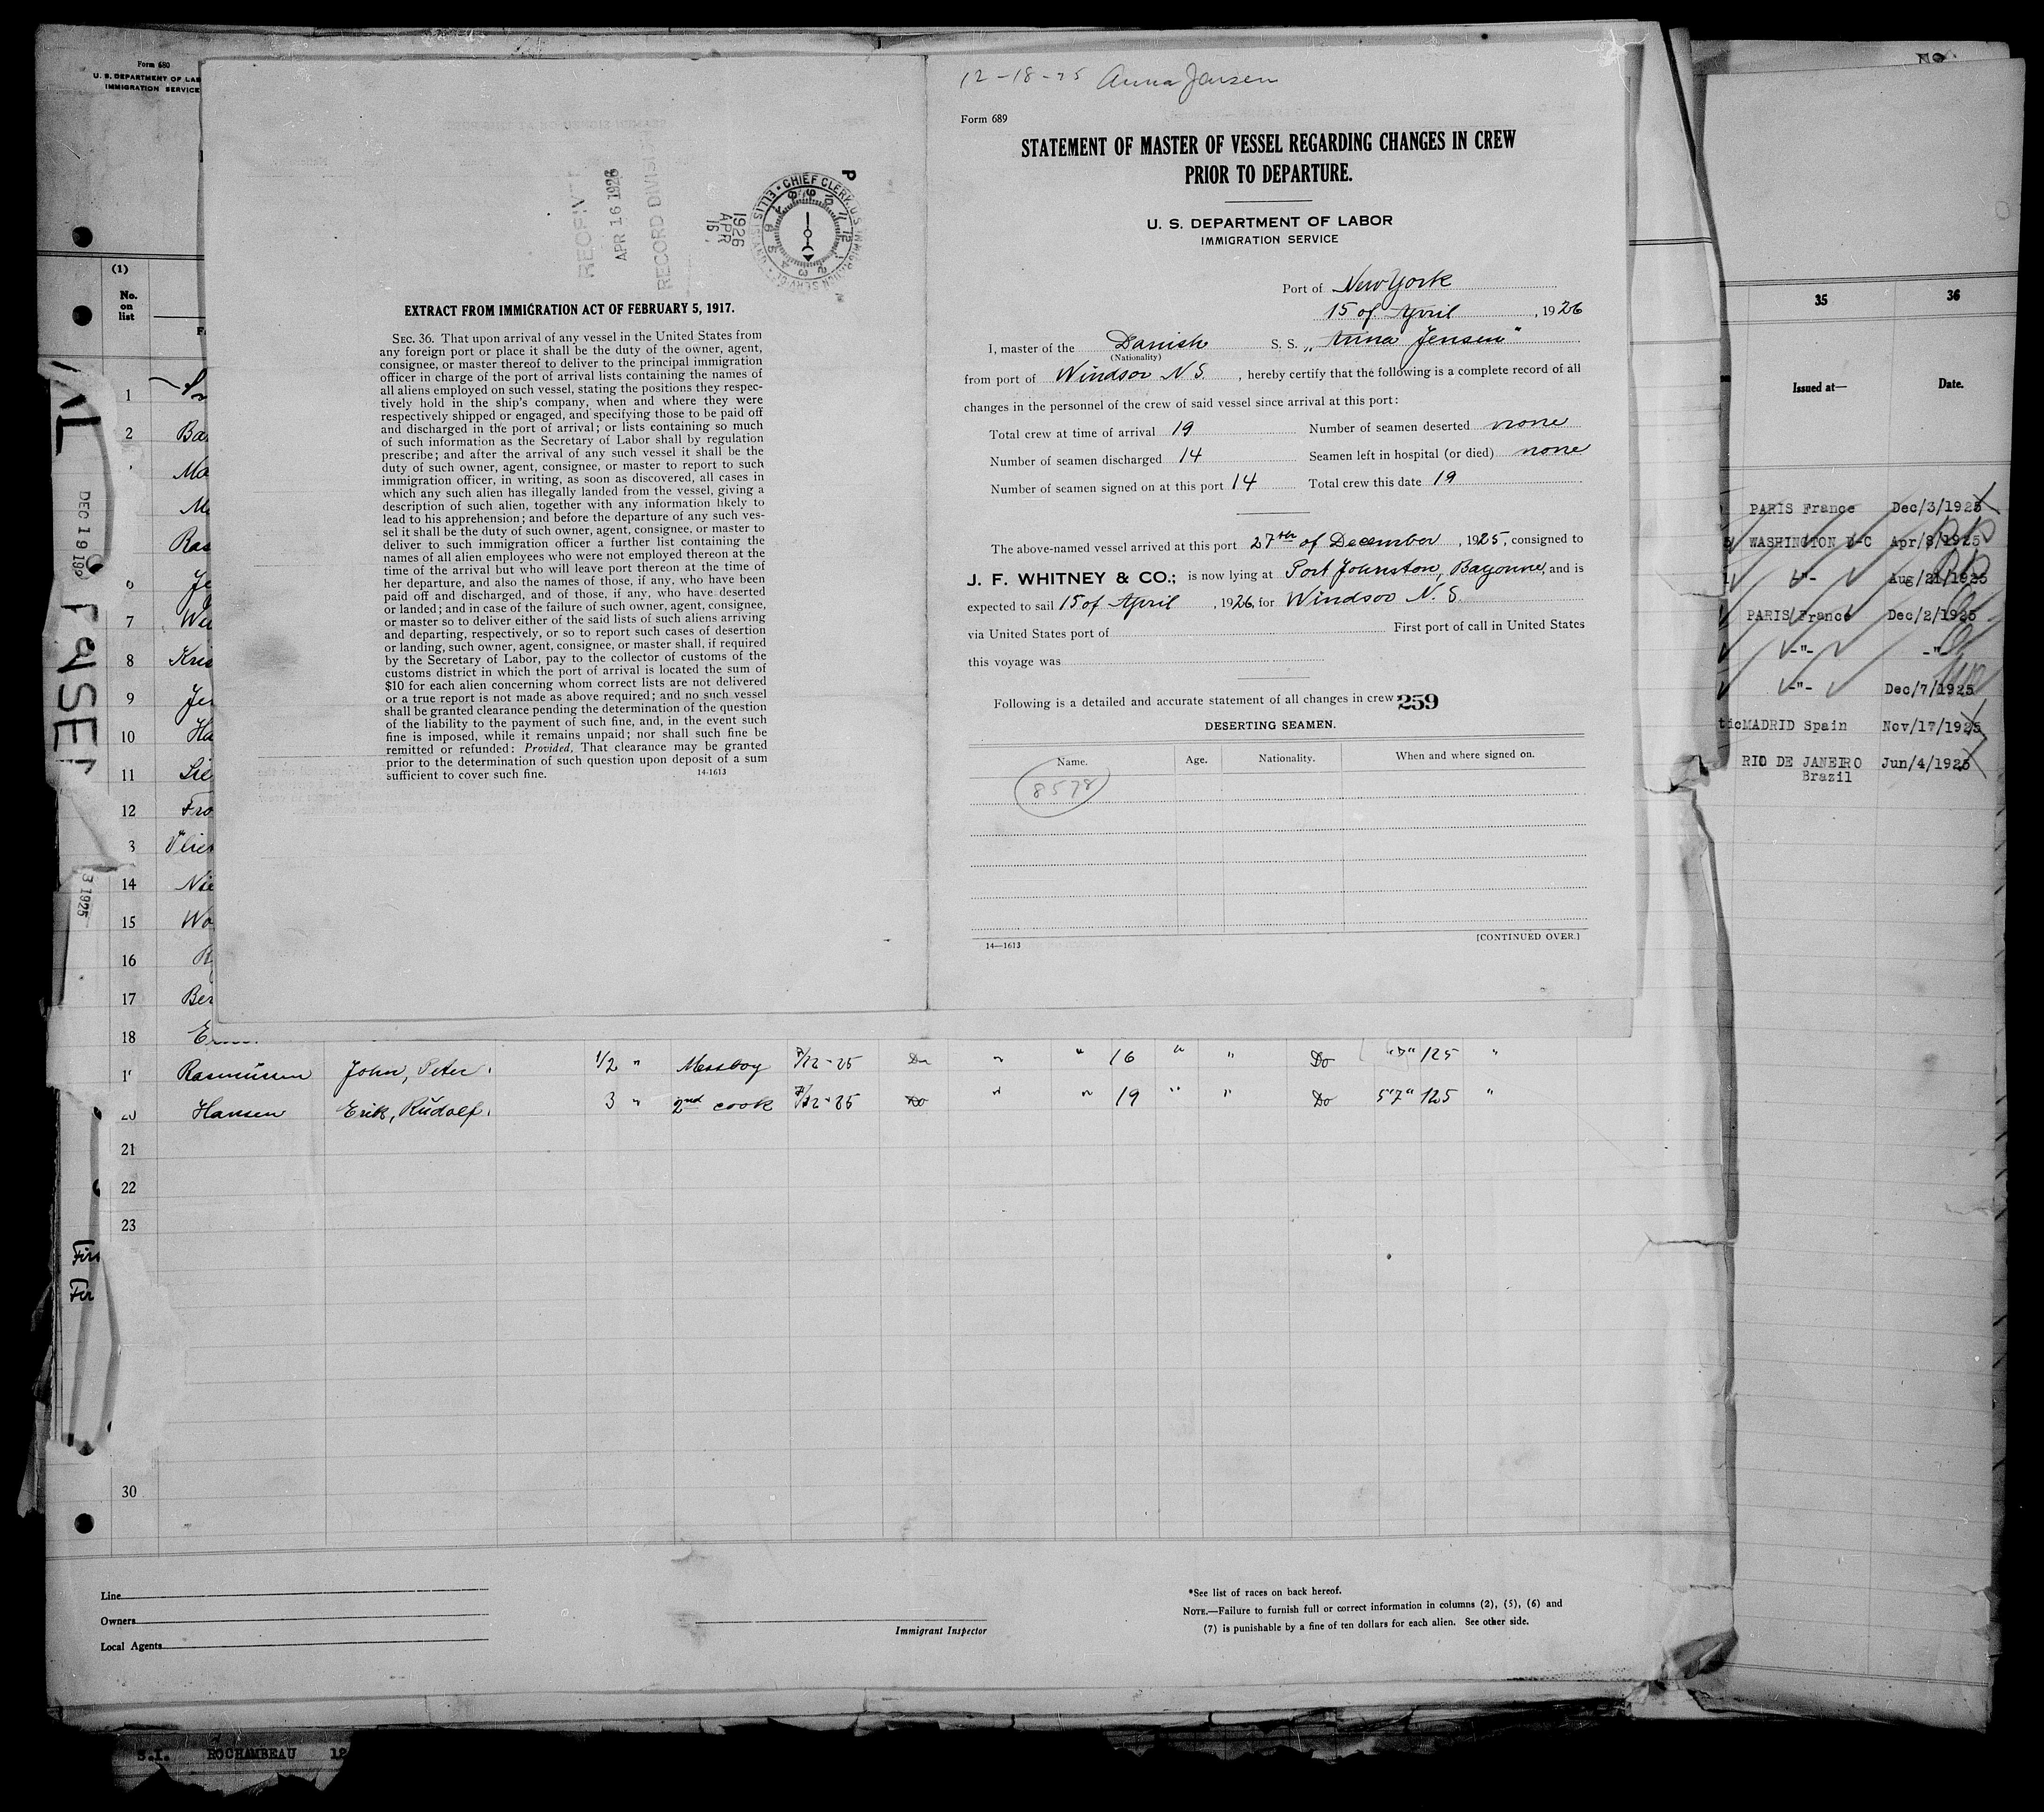 Form 680
U. S. DEPARTMENT OF LAB
IMMIGRATION SERVICE
(1)
No.
on
list
1
2 Ba
Ma
M
Ras
6 Je
7 We
8 Kris
9 Jen
10 Ha
11
12 Fro
3
14 Nie
15 Wo
16
17 Ber
18
DEC 19 19
3 1925
RECEIVE
APR 16 1926
RECORD DIVIS
1926
APR
16
P
CHIEF CLERK, U.S. IMMIGRATION SERVICE • ELLIS ISLAND
EXTRACT FROM IMMIGRATION ACT OF FEBRUARY 5, 1917.
SEC. 36. That upon arrival of any vessel in the United States from
any foreign port or place it shall be the duty of the owner, agent,
consignee, or master thereof to deliver to the principal immigration
officer in charge of the port of arrival lists containing the names of
all aliens employed on such vessel, stating the positions they respec-
tively hold in the ship's company, when and where they were
respectively shipped or engaged, and specifying those to be paid off
and discharged in the port of arrival; or lists containing so much
of such information as the Secretary of Labor shall by regulation
prescribe; and after the arrival of any such vessel it shall be the
duty of such owner, agent, consignee, or master to report to such
immigration officer, in writing, as soon as discovered, all cases in
which any such alien has illegally landed from the vessel, giving a
description of such alien, together with any information likely to
lead to his apprehension; and before the departure of any such ves-
sel it shall be the duty of such owner, agent, consignee, or master to
deliver to such immigration officer a further list containing the
names of all alien employees who were not employed thereon at the
time of the arrival but who will leave port thereon at the time of
her departure, and also the names of those, if any, who have been
paid off and discharged, and of those, if any, who have deserted
or landed; and in case of the failure of such owner, agent, consignee,
or master so to deliver either of the said lists of such aliens arriving
and departing, respectively, or so to report such cases of desertion
or landing, such owner, agent, consignee, or master shall, if required
by the Secretary of Labor, pay to the collector of customs of the
customs district in which the port of arrival is located the sum of
$10 for each alien concerning whom correct lists are not delivered
or a true report is not made as above required; and no such vessel
shall be granted clearance pending the determination of the question
of the liability to the payment of such fine, and, in the event such
fine is imposed, while it remains unpaid; nor shall such fine be
remitted or refunded: Provided, That clearance may be granted
prior to the determination of such question upon deposit of a sum
sufficient to cover such fine. 14-1613
12-18-25 Anna Jensen
Form 689
STATEMENT OF MASTER OF VESSEL REGARDING CHANGES IN CREW
PRIOR TO DEPARTURE.
U. S. DEPARTMENT OF LABOR
IMMIGRATION SERVICE
Port of New York
15 of April, 1926
I, master of the Danish S. S. „Anna Jensen"
(Nationality)
from port of Windsor N S., hereby certify that the following is a complete record of all
changes in the personnel of the crew of said vessel since arrival at this port:
Total crew at time of arrival 19 Number of seamen deserted none
Number of seamen discharged 14 Seamen left in hospital (or died) none
Number of seamen signed on at this port 14 Total crew this date 19
The above-named vessel arrived at this port 27th of December, 1925, consigned to
J. F. WHITNEY & CO.; is now lying at Port Johnston, Bayonne, and is
expected to sail 15 of April, 1926, for Windsor N. S.
via United States port of First port of call in United States
this voyage was
Following is a detailed and accurate statement of all changes in crew 259
DESERTING SEAMEN.
Name. Age. Nationality. When and where signed on.
8578
14—1613 [CONTINUED OVER.]
35 36
Issued at— Date.
PARIS France Dec/3/1925
WASHINGTON D-C Apr/8/1925
-"- Aug/21/1925
PARIS France Dec/2/1925
-"- -"-
-"- Dec/7/1925
tic MADRID Spain Nov/17/1925
RIO DE JANEIRO Jun/4/1925
Brazil
Rasmussen John, Peter 1/2 " Messboy 7/12-25 Do " " 16 " " Do 125 "
20 Hansen Erik, Rudolf 3 " 2nd cook 7/12-25 Do " " 19 " " Do 5'7" 125 "
21
22
23
30
Line
Owners
Local Agents
Immigrant Inspector
*See list of races on back hereof.
NOTE.—Failure to furnish full or correct information in columns (2), (5), (6) and
(7) is punishable by a fine of ten dollars for each alien. See other side.
S.I. ROCHAMBEAU 12